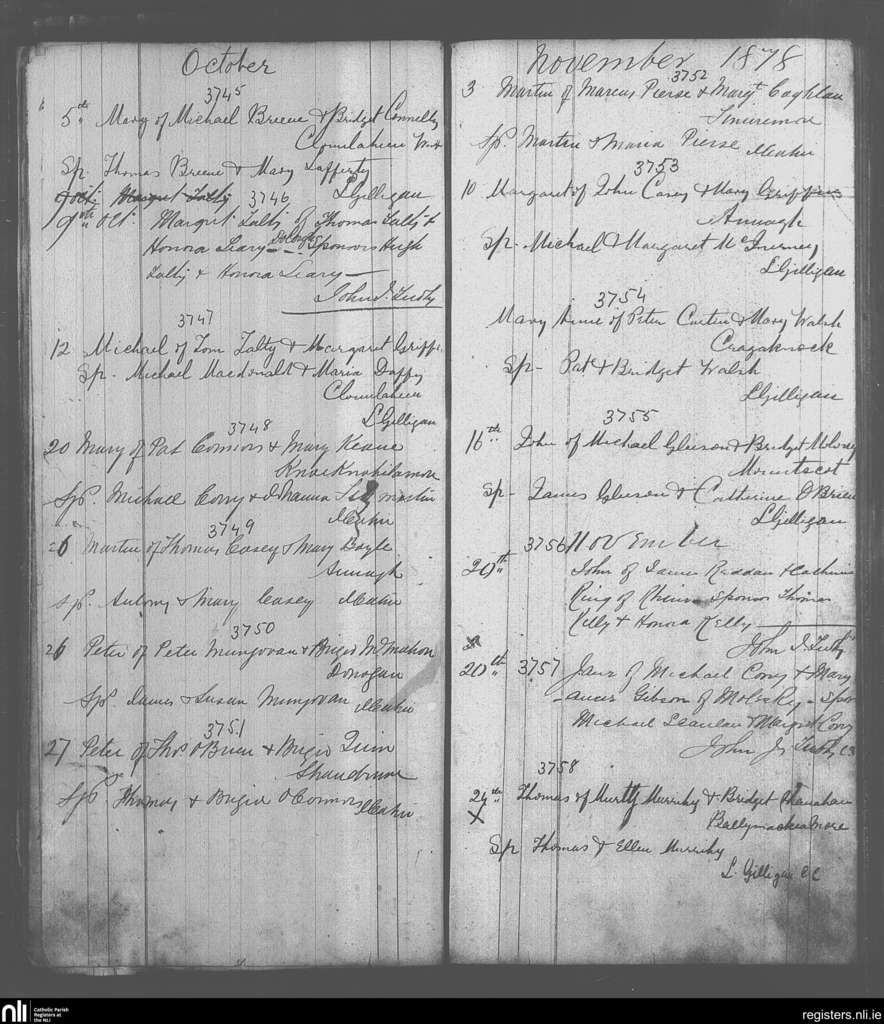 October
3745
5th Mary of Michael Breene & Bridget Connelly
Clounlaheen
Sp. Thomas Breene & Mary Lafferty
LGilligan
9 Oct. Margret Talty 3746
9th Oct. Margret Talty of Thomas Talty &
Honora Leary Sponsors Hugh
Talty & Honora Leary
John J.
3747
12 Michael of Tom Talty & Margaret Griffi
Sp. Michael Macdonald & Maria Duffy
Clounlaheen
LGilligan
3748
20 Mary of Pat Connors & Mary Keane
Sps. Michael Corry & Johanna
3749
26 Martin of Thomas Casey & Mary Boyle
Annagh
Sps. Antony & Mary Casey
3750
26 Peter of Peter Mungovan & Brigid McMahon
Donogan
Sps. James & Susan Mungovan
3751
27 Peter of Thos O'Brien & Brigid Quin
Sps Thomas & Brigid O'Connor
November 1878
3752
3 Martin of Marcus Pierse & Margt Coghlan
Sps. Martin & Maria Pierse
3753
10 Margaret of John Casey & Mary Griffin
Annagh
Sp- Michael & Margaret McInerney
LGilligan
3754
Mary Anne of Peter Curtin & Mary Walsh
Craggaknock
Sp- Pat & Bridget Walsh
LGilligan
3755
16th John of Michael Gleeson & Bridget Molony
Mountscot
Sp- James Gleeson & Catherine O'Brien
LGilligan
3756 November
20th John of James Reddan & Catherine
King of Sponsors Thomas
Kelly & Honora Kelly
John J.
20th 3757 Jane of Michael Corry & Mary
Gibson of Molosky - Spon
Michael Scanlan & Margret Corry
John J.
3758
24th Thomas of Murty Murrihy & Bridget Shanahan
X
Sp Thomas & Ellen Murrihy
L. Gilligan CC
nli
Catholic Parish
Registers at
the NLI
registers.nli.ie